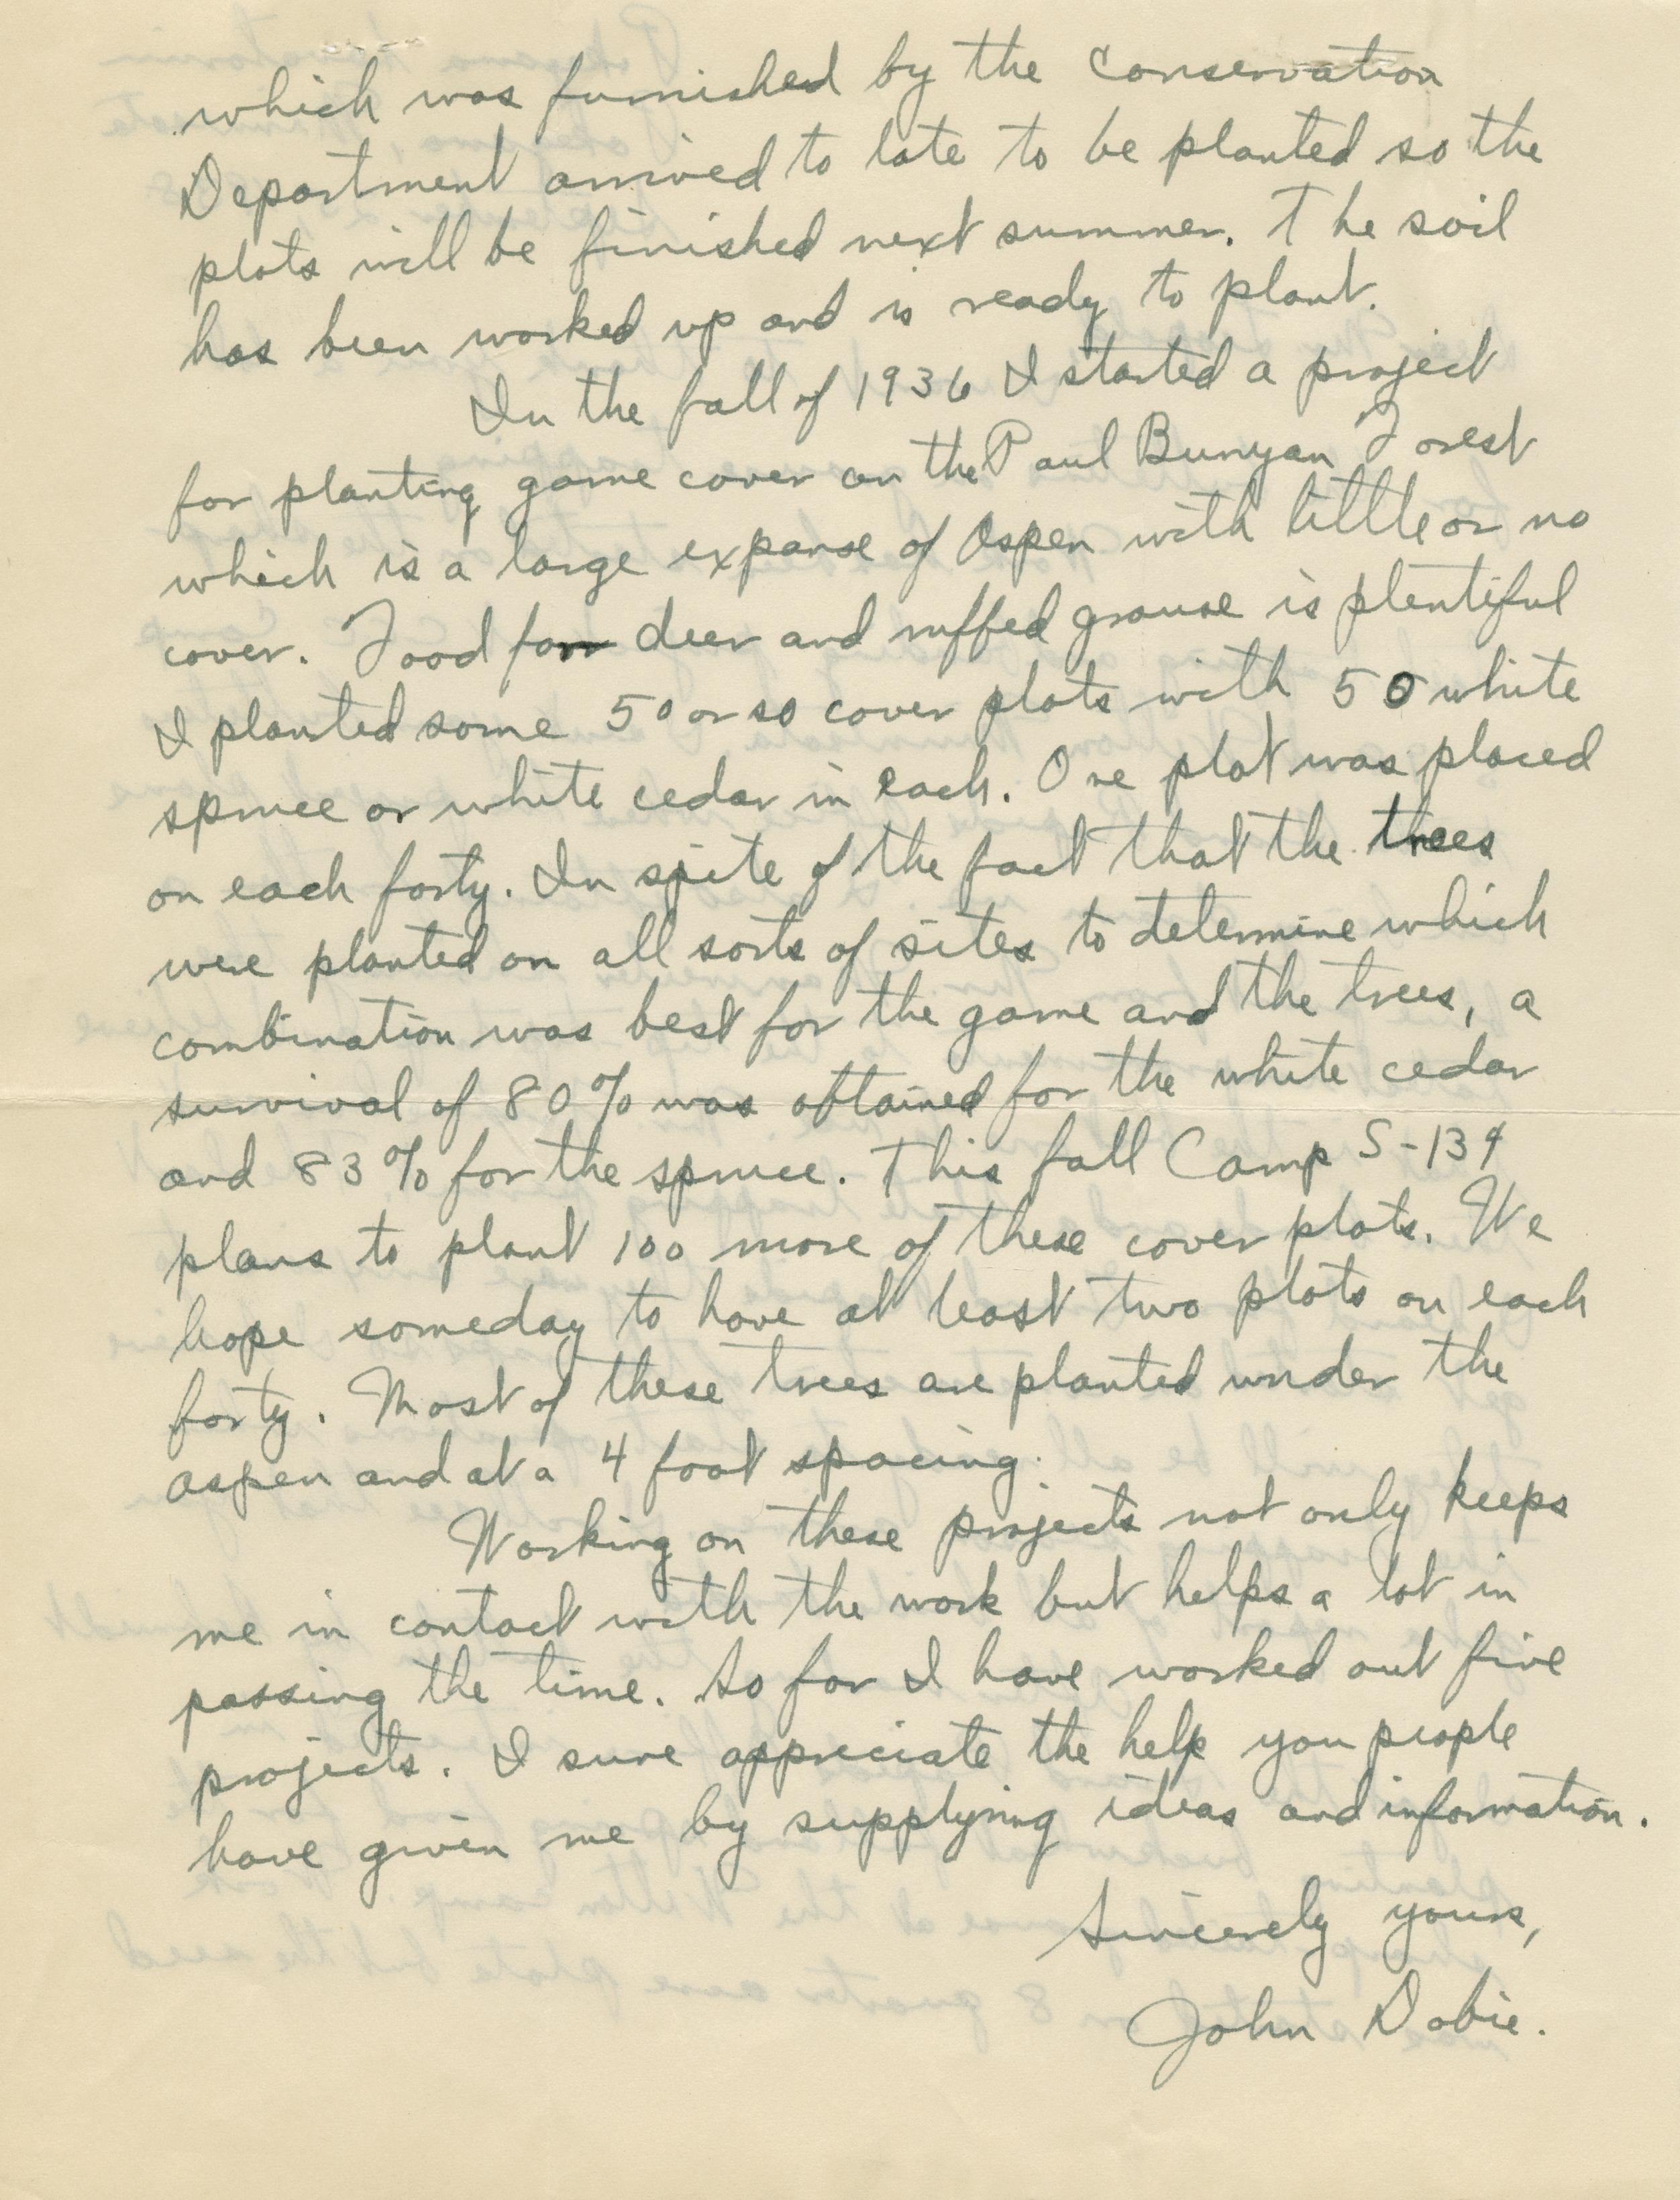 which was furnished by the Conservation
Department arrived to late to be planted so the
plots will be finished next summer. The soil
has been worked up and is ready to plant.
In the fall of 1936 I started a project
for planting game cover on the Paul Bunyan Forest
which is a large expanse of Aspen with little or no
cover. Food for deer and ruffed grouse is plentiful
I planted some 50 or so cover plots with 50 white
spruce or white cedar in each. One plot was placed
on each forty. In spite of the fact that the trees
were planted on all sorts of sites to determine which
combination was best for the game and the trees, a
survival of 80% was obtained for the white cedar
and 83% for the spruce. This fall Camp S-134
plans to plant 100 more of these cover plots. We
hope someday to have at least two plots on each
forty. Most of these trees are planted under the
aspen and at a 4 foot spacing.
Working on these projects not only keeps
me in contact with the work but helps a lot in
passing the time. So far I have worked out five
projects. I sure appreciate the help you people
have given me by supplying ideas and information.
Sincerely yours,
John Dobie.